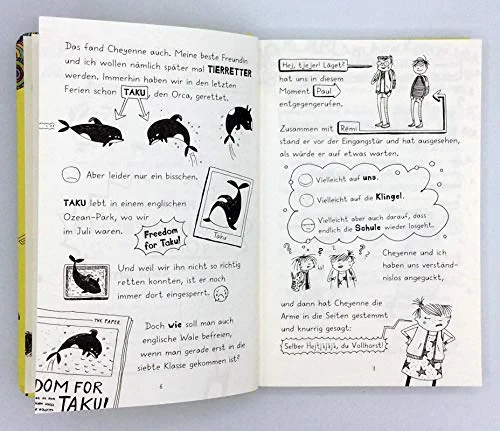 Das fand Cheyenne auch. Meine beste Freundin
und ich wollen nämlich später mal TIERRETTER
werden. Immerhin haben wir in den letzten
Ferien schon TAKU, den Orca, gerettet.
Aber leider nur ein bisschen.
TAKU lebt in einem englischen
Ozean-Park, wo wir
in Juli waren.
Freedom
for Taku!
Taku
Und weil wir ihn nicht so richtig
retten konnten, ist er noch
immer dort eingesperrt.
THE PAPER
Doch wie soll man auch
englische Wale befreien,
wenn man gerade erst in die
siebte Klasse gekommen ist?
DOM FOR
TAKU!
6
Hej, tjejer! Läget?
hat uns in diesem
Moment Paul
entgegengerufen.
Zusammen mit Rémi
stand er vor der Eingangstür und hat ausgesehen,
als würde er auf etwas warten.
Vielleicht auf uns.
Vielleicht auf die Klingel.
Vielleicht aber auch darauf, dass
endlich die Schule wieder losgeht.
Cheyenne und ich
haben uns verständ-
nislos angeguckt,
und dann hat Cheyenne die
Arme in die Seiten gestemmt
und knurrig gesagt:
Selber Hejtjkjkjk, du Vollhorst!